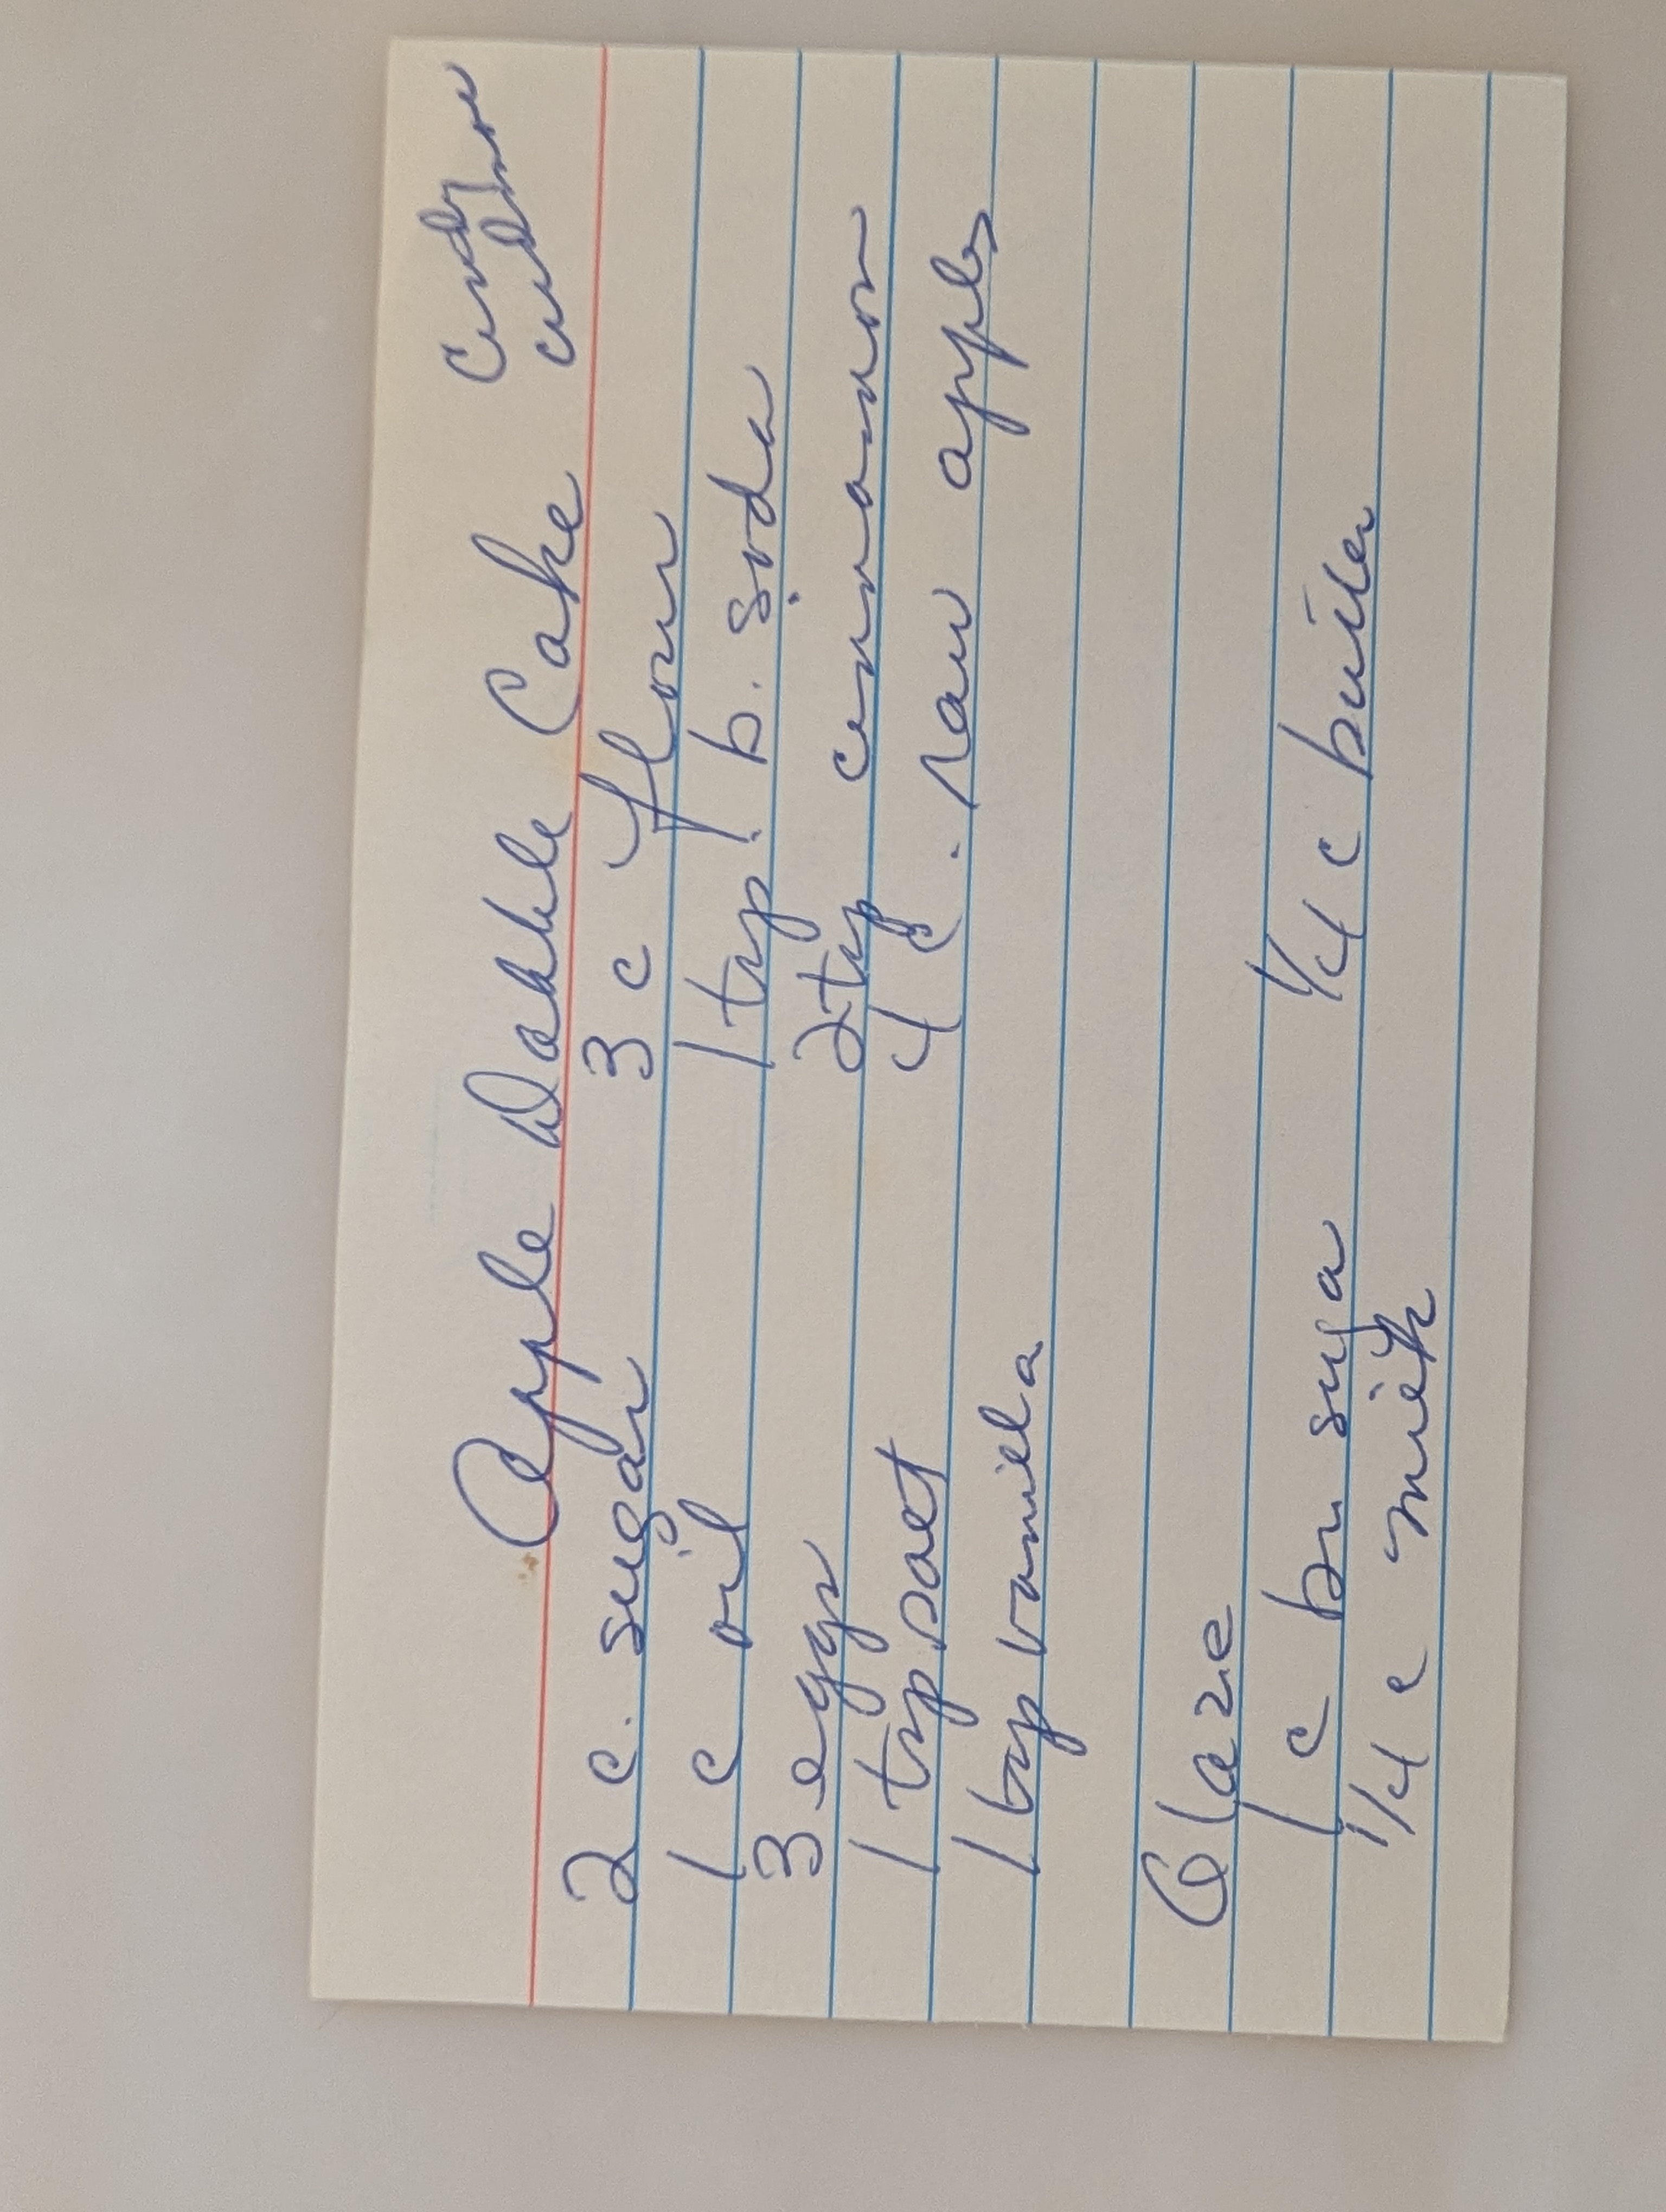 Apple Dabble Cake Cindy
2 c. sugar 3 c flour
1 c oil 1 tsp. b. soda
3 eggs 2 tsp cinnamon
1 tsp salt 4 c. raw apples
1 tsp vanilla
Glaze
1 c br suga 1/4 c butter
1/4 c milk